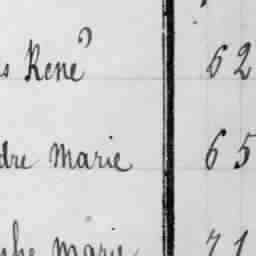 s René 62
dre Marie 65
phe Marie 71